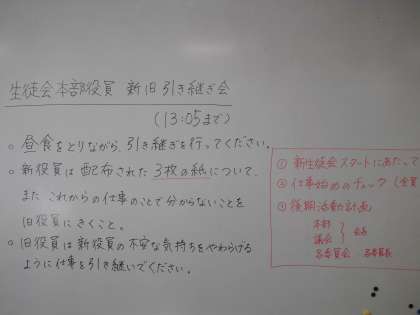 生徒会本部役員 新旧引き継ぎ会
(13:05まで)
○ 昼食をとりながら、引き継ぎを行ってください。
○ 新役員は配布された3枚の紙について、
また これからの仕事のことで分からないことを
旧役員にきくこと。
○ 旧役員は新役員の不安な気持ちをやわらげる
ように仕事を引き継いでください。
① 新生徒会スタートにあたって
② 仕事始めのチェック (全員
③ 後期活動計画
本部
議会 } 会長
各委員会 各委員長